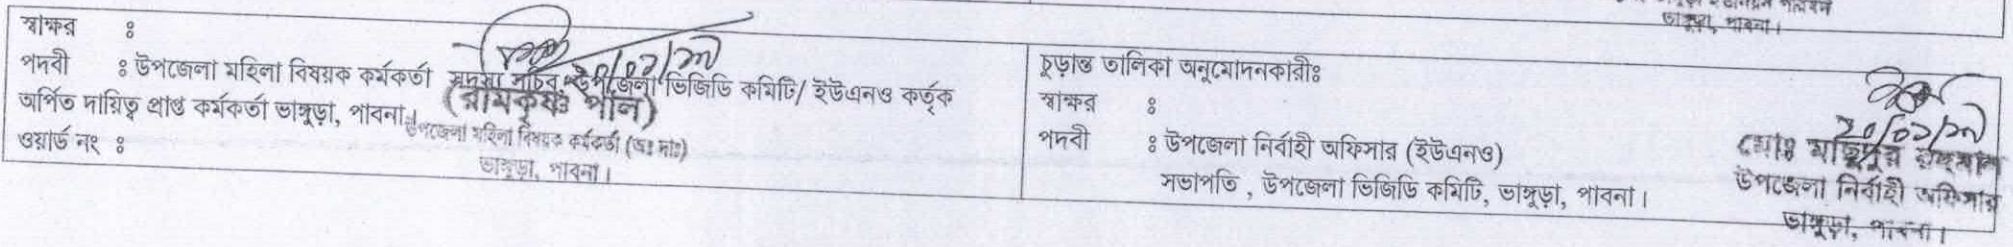 ভাঙ্গুড়া, পাবনা।
স্বাক্ষর ঃ
পদবী ঃ উপজেলা মহিলা বিষয়ক কর্মকর্তা সদস্য সচিব, উপজেলা ভিজিডি কমিটি/ ইউএনও কর্তৃক
অর্পিত দায়িত্ব প্রাপ্ত কর্মকর্তা ভাঙ্গুড়া, পাবনা।
(রামকৃষ্ণ পাল)
উপজেলা মহিলা বিষয়ক কর্মকর্তা (অঃ দাঃ)
ভাঙ্গুড়া, পাবনা।
ওয়ার্ড নং ঃ
চুড়ান্ত তালিকা অনুমোদনকারীঃ
স্বাক্ষর ঃ
পদবী ঃ উপজেলা নির্বাহী অফিসার (ইউএনও)
সভাপতি , উপজেলা ভিজিডি কমিটি, ভাঙ্গুড়া, পাবনা।
মোঃ
উপজেলা নির্বাহী অফিসার
ভাঙ্গুড়া, পাবনা।